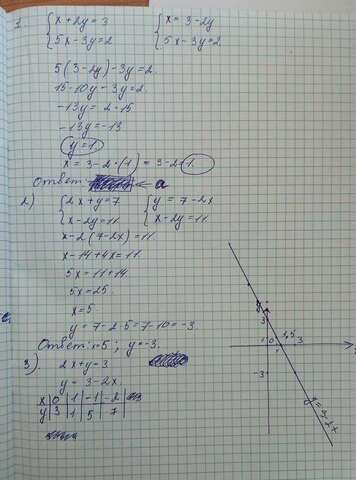 1. { x + 2y = 3    { x = 3 - 2y
{ 5x - 3y = 2    { 5x - 3y = 2
5(3 - 2y) - 3y = 2.
15 - 10y - 3y = 2.
-13y = 2 - 15
-13y = -13
y = 1
x = 3 - 2 · (1) = 3 - 2 = 1.
Ответ: ← a
2) { 2x + y = 7    { y = 7 - 2x
{ x - 2y = 11.    { x - 2y = 11.
x - 2(7 - 2x) = 11.
x - 14 + 4x = 11.
5x = 11 + 14.
5x = 25.
x = 5
y = 7 - 2·5 = 7 - 10 = -3.
Ответ: x = 5; y = -3.
3) 2x + y = 3
y = 3 - 2x.
x | 0 | 1 | -1 | -2
y | 3 | 1 | 5 | 7
y
3
-1 0 1 1,5 3
-3
y = 3 - 2x